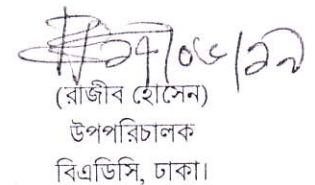 ২৭/০৬/১৯
(রাজীব হোসেন)
উপপরিচালক
বিএডিসি, ঢাকা।